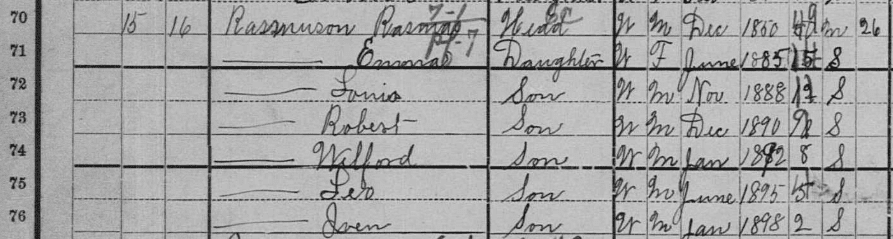 70 15 16 Rasmuson Rasmas Head W M Dec 1850 49 M 26
71 —— Emma Daughter W F June 1885 S
72 —— Louis Son W M Nov. 1888 S
73 —— Robert Son W M Dec 1890 9 S
74 —— Wilford Son W M Jan 1892 8 S
75 —— Leo Son W M June 1895 S
76 —— Iven Son W M Jan 1898 2 S